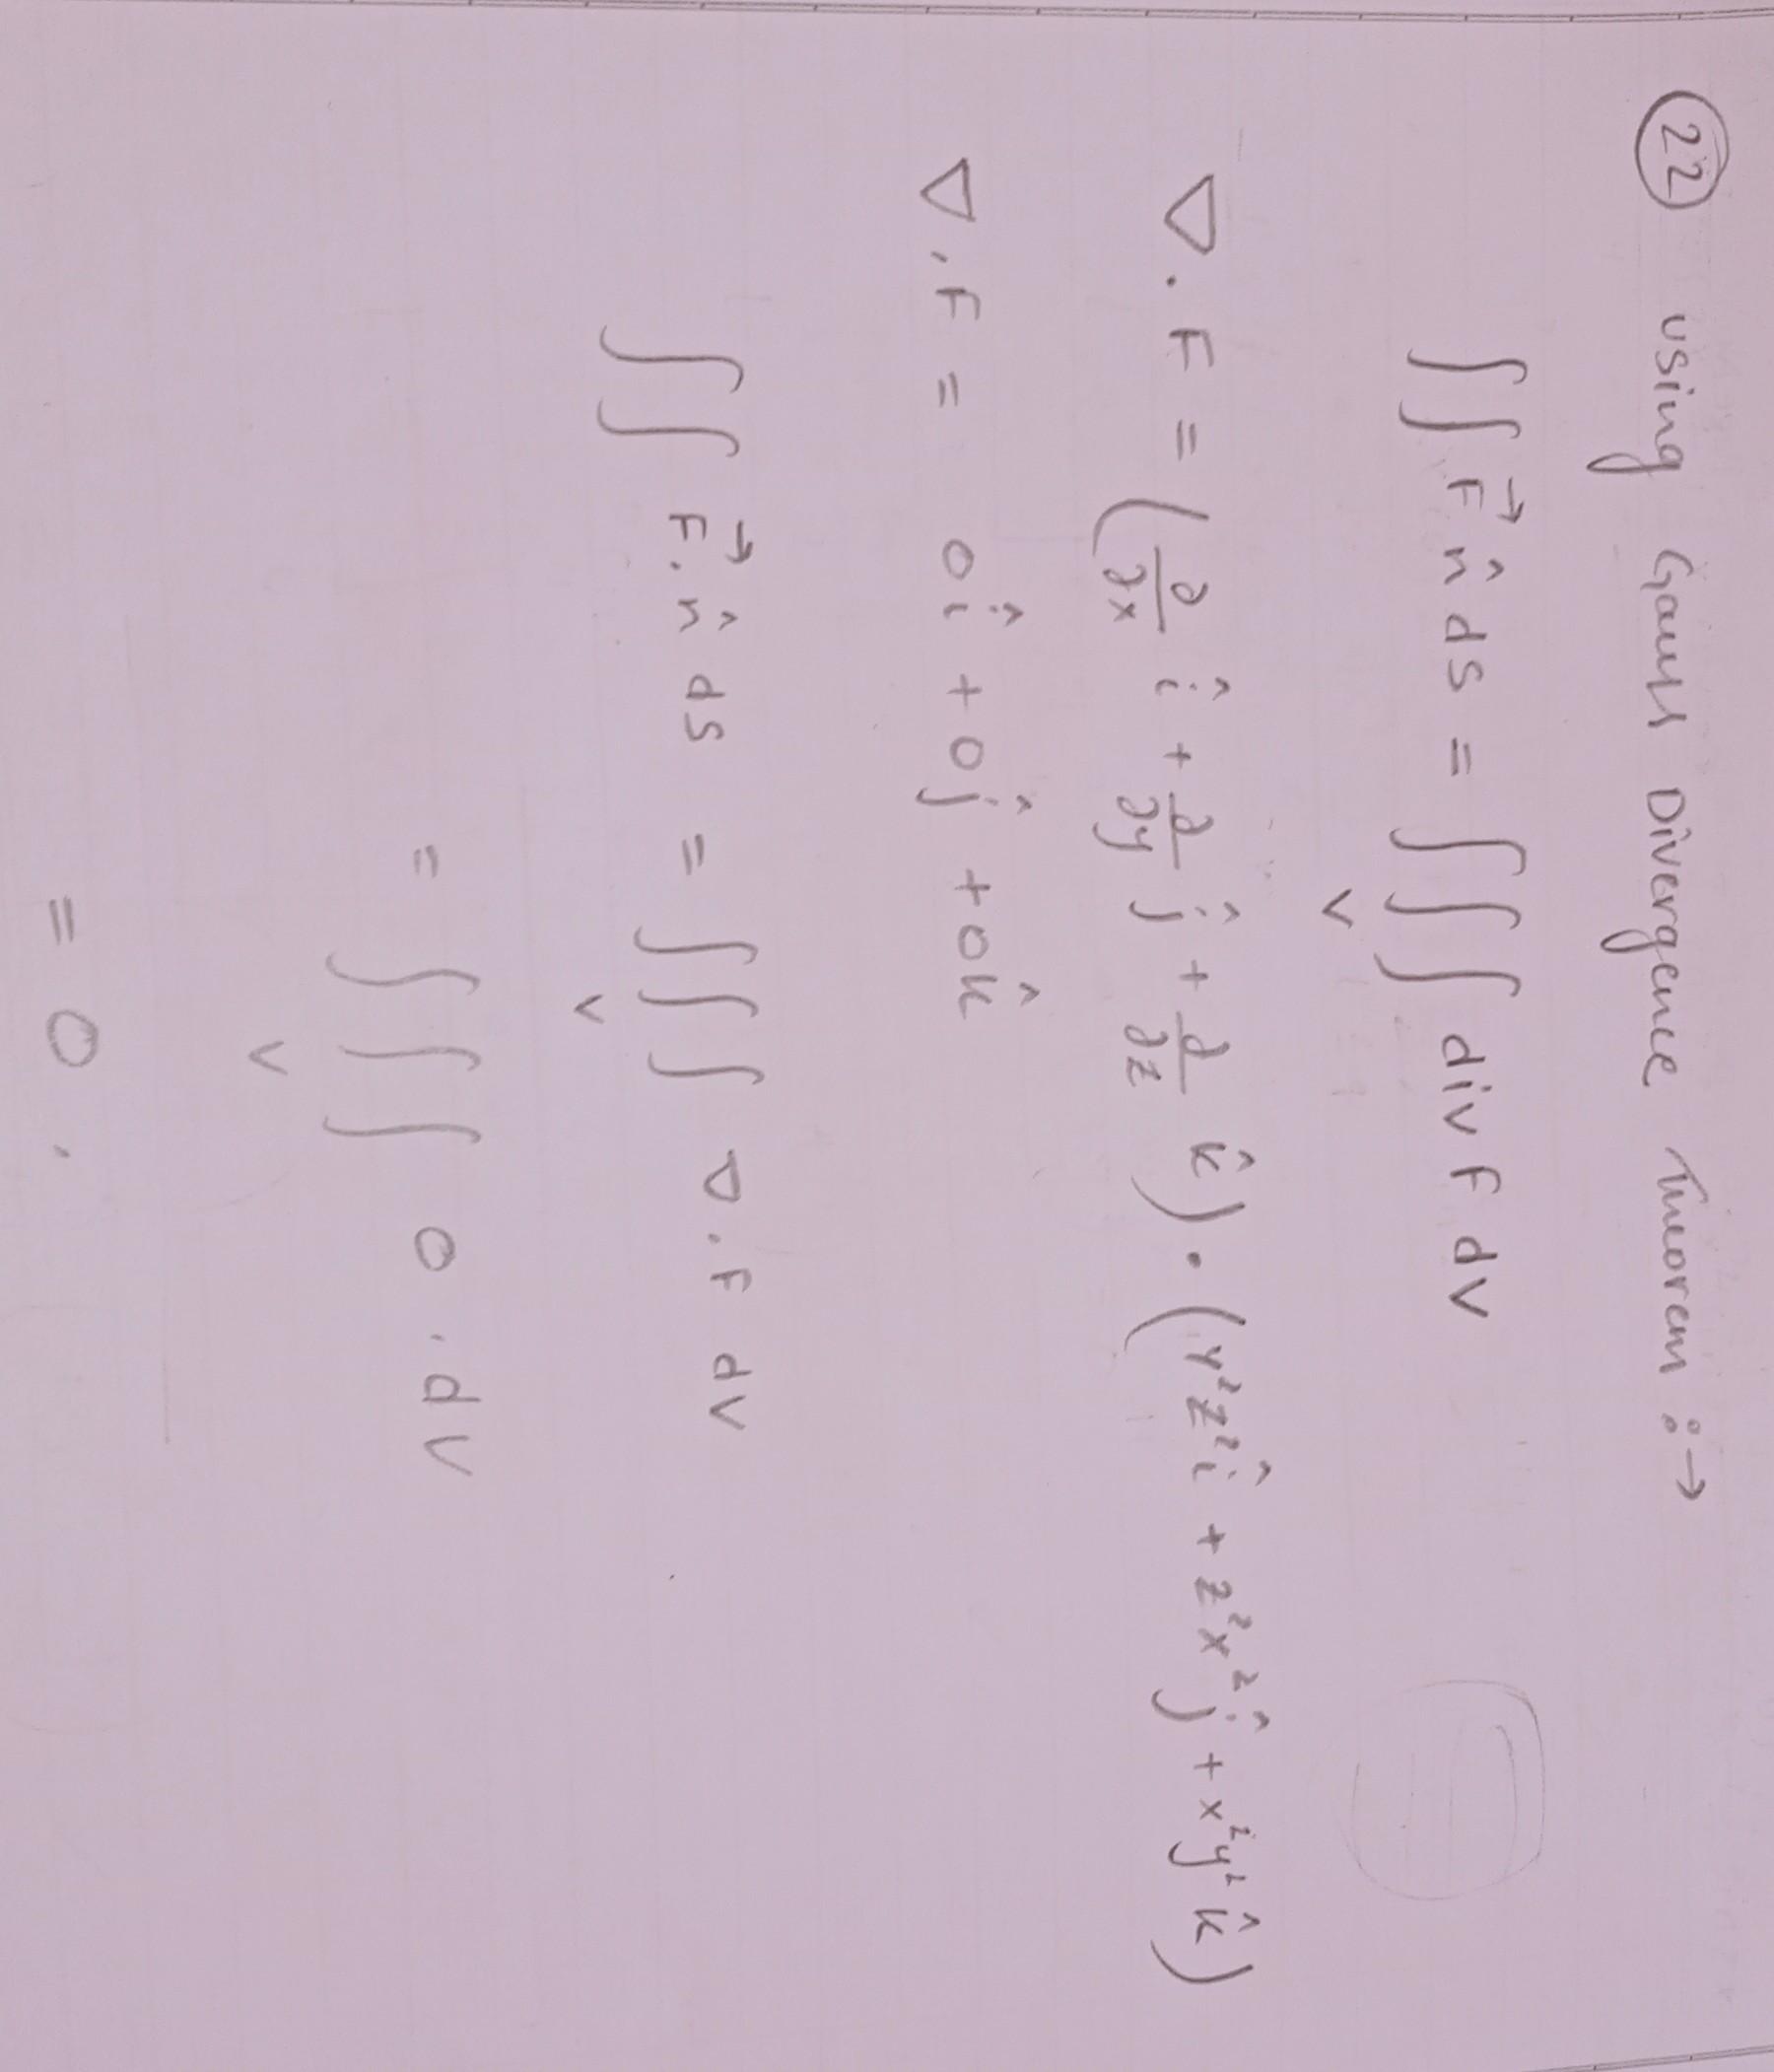 22 Using Gauss Divergence Theorem :→
∫∫ F⃗ n̂ ds = ∫∫∫ div F dv
v
∇ . F = (∂/∂x î + ∂/∂y ĵ + ∂/∂z k̂) . (y²z²î + z²x²ĵ + x²y²k̂)
∇ . F = 0î + 0ĵ + 0k̂
∫∫ F⃗ . n̂ ds = ∫∫∫ ∇ . F dv
v
= ∫∫∫ 0 . dv
v
= 0 .